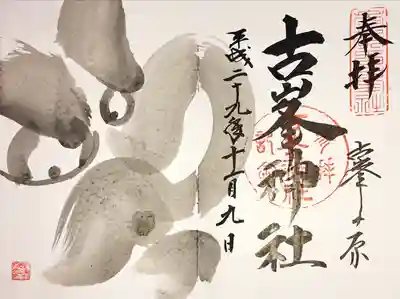 奉拝
古峯ヶ原
古峯神社
平成二十九年十一月九日